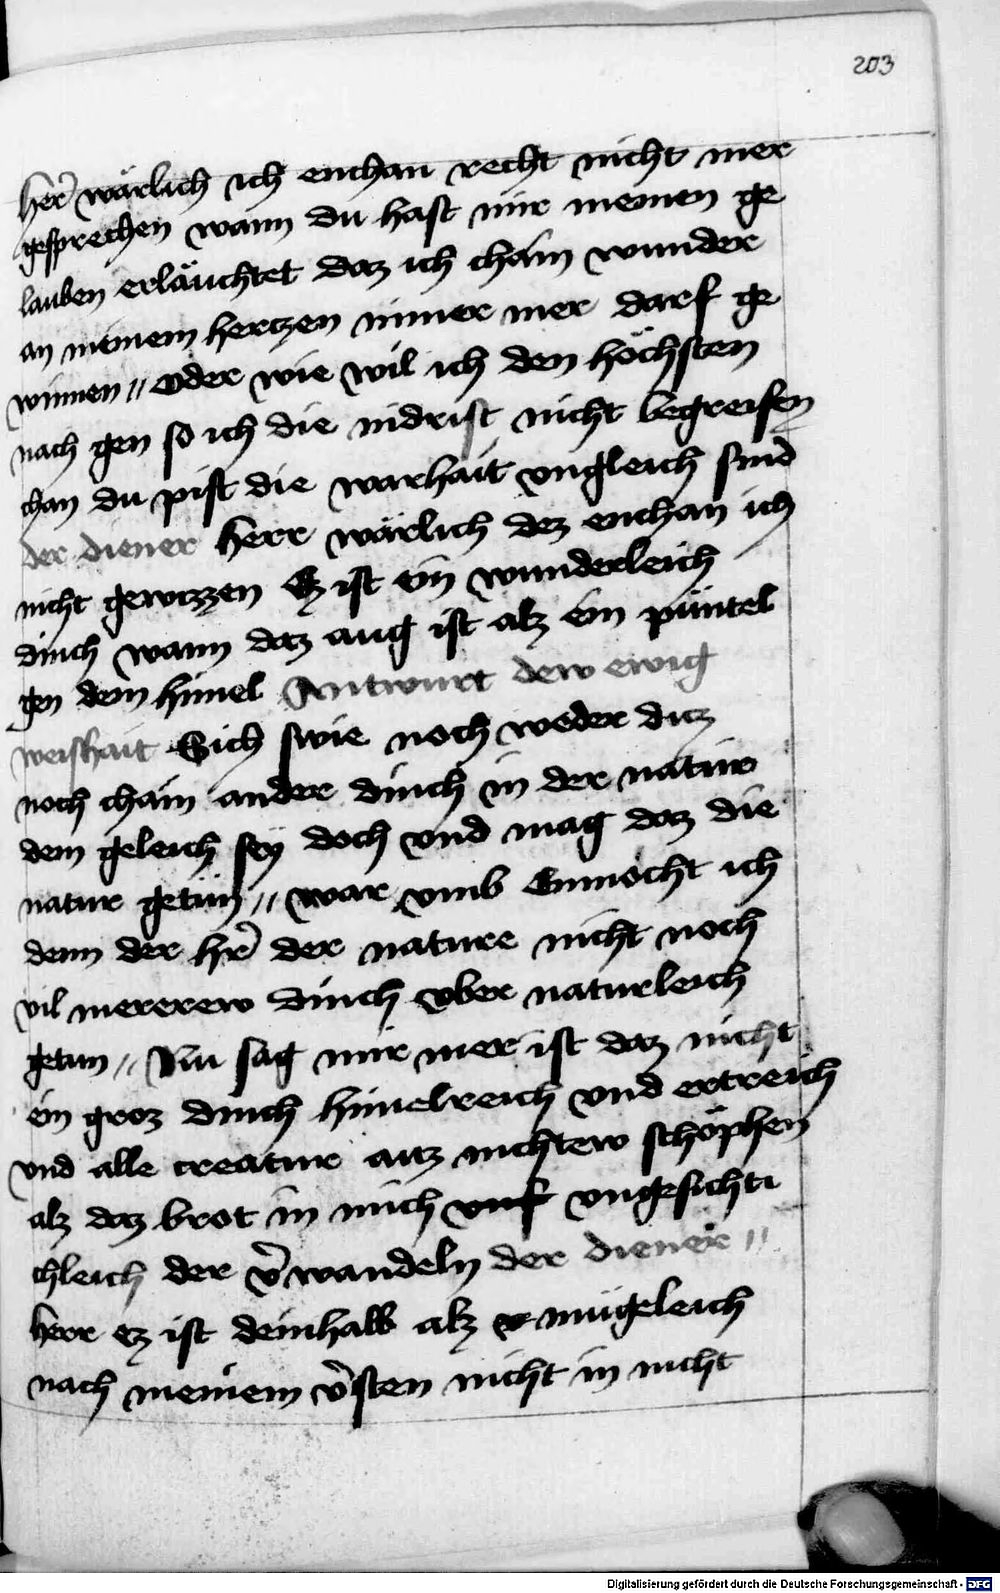 203
her̄ wärlich ich enchan recht nicht mer
gesprechen wann du hast mir meinen ge
lauben erläuchtet daz ich chain wunder
an meinem hertzen nimer mer darf ge
winnen // oder wie wil ich den höchsten
nach gen so ich die nidrist nicht begreifen
chan du pist die warhait vngleich sind
der diener herr wärlich dez enchan ich
nicht gewizzen Ez ist ein wunderleich
dinch wann daz aug ist alz ein püntel
gen dem himel Antwurt dew ewig
weishait Sich swie noch weder ditz
noch chain ander dinch in der natür
dem geleich sey doch vnd mag daz die
natur getün // war vmb Enmöcht ich
denn der hr̄ der nature nicht noch
vil mererew dinch vber naturleich
getun // Nu sag mir mer ist daz nicht
ein groz dinch himelreich vnd ertreich
vnd alle creatur auz nichtew schöphen
alz daz brot in mich vnf vngesichti
chleich der v̄wandeln der diener //
herr ez ist deinhalb alz mügeleich
nach meinem v̄sten nicht in nicht
Digitalisierung gefördert durch die Deutsche Forschungsgemeinschaft - DFG